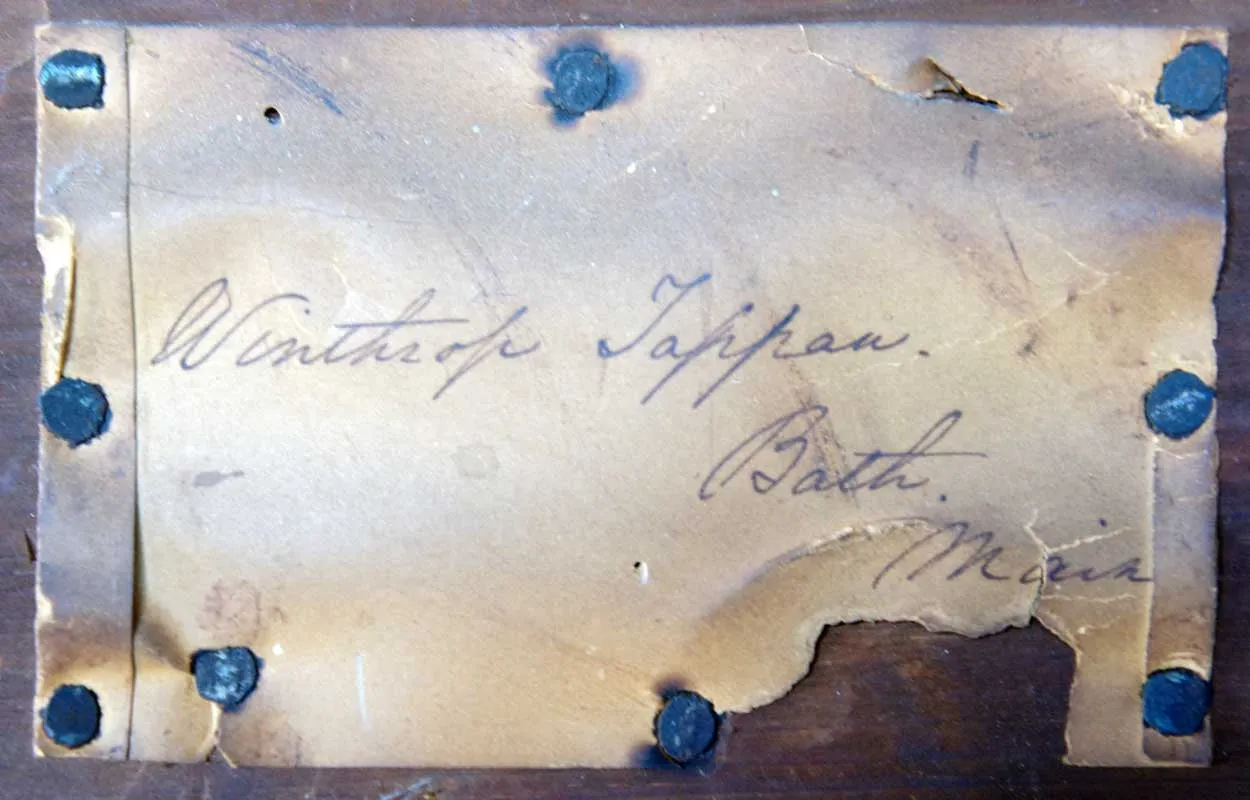 Winthrop Tappan.
Bath.
Main